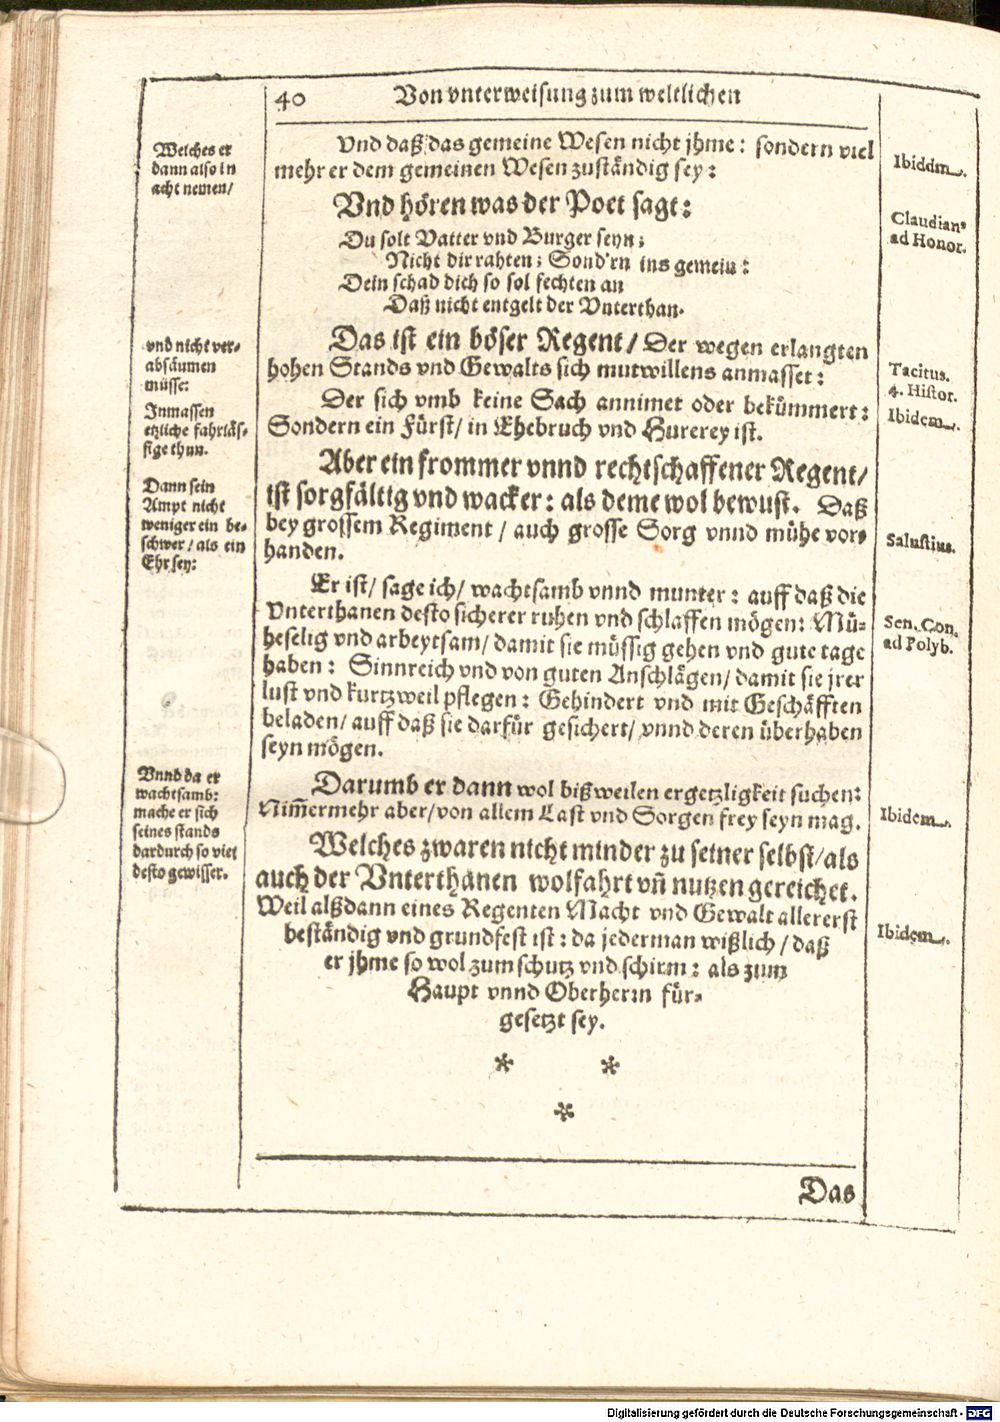 40 Von vnterweisung zum weltlichen
Welches er
dann also in
acht nemen/
Vnd daß das gemeine Wesen nicht jhme: sondern viel
mehr er dem gemeinen Wesen zuständig sey:
Ibiddm.
Vnd hören was der Poet sagt:
Claudian9
ad Honor.
Du solt Vatter vnd Burger seyn;
Nicht dir rahten; Sond'rn ins gemein:
Dein schad dich so sol fechten an
Daß nicht entgelt der Vnterthan.
vnd nicht ver-
absäumen
müsse:
Das ist ein böser Regent/ Der wegen erlangten
hohen Stands vnd Gewalts sich mutwillens anmasset:
Tacitus.
4. Histor.
Inmassen
etzliche fahrläs-
sige thun.
Der sich vmb keine Sach annimet oder bekümmert:
Sondern ein Fürst/ in Ehebruch vnd Hurerey ist.
Ibidem.
Dann sein
Ampt nicht
weniger ein be-
schwer/ als ein
Ehr sey:
Aber ein frommer vnnd rechtschaffener Regent/
ist sorgfältig vnd wacker: als deme wol bewust. Daß
bey grossem Regiment/ auch grosse Sorg vnnd mühe vor-
handen.
Salustius.
Er ist/ sage ich/ wachtsamb vnnd munter: auff daß die
Vnterthanen desto sicherer ruhen vnd schlaffen mögen: Mü-
heselig vnd arbeytsam/ damit sie müssig gehen vnd gute tage
haben: Sinnreich vnd von guten Anschlägen/ damit sie jrer
lust vnd kurtzweil pflegen: Gehindert vnd mit Geschäfften
beladen/ auff daß sie darfür gesichert/ vnnd deren überhaben
seyn mögen.
Sen. Con.
ad Polyb.
Vnnd da er
wachtsamb:
mache er sich
seines stands
dardurch so viel
desto gewisser.
Darumb er dann wol bißweilen ergetzligkeit suchen:
Nim̄ermehr aber/ von allem Last vnd Sorgen frey seyn mag.
Ibidem.
Welches zwaren nicht minder zu seiner selbst/ als
auch der Vnterthanen wolfahrt vn̄ nutzen gereichet.
Weil alßdann eines Regenten Macht vnd Gewalt allererst
beständig vnd grundfest ist: da jederman wißlich/ daß
er jhme so wol zum schutz vnd schirm: als zum
Haupt vnnd Oberherrn für-
gesetzt sey.
Ibidem.
* *
*
Das
Digitalisierung gefördert durch die Deutsche Forschungsgemeinschaft - DFG